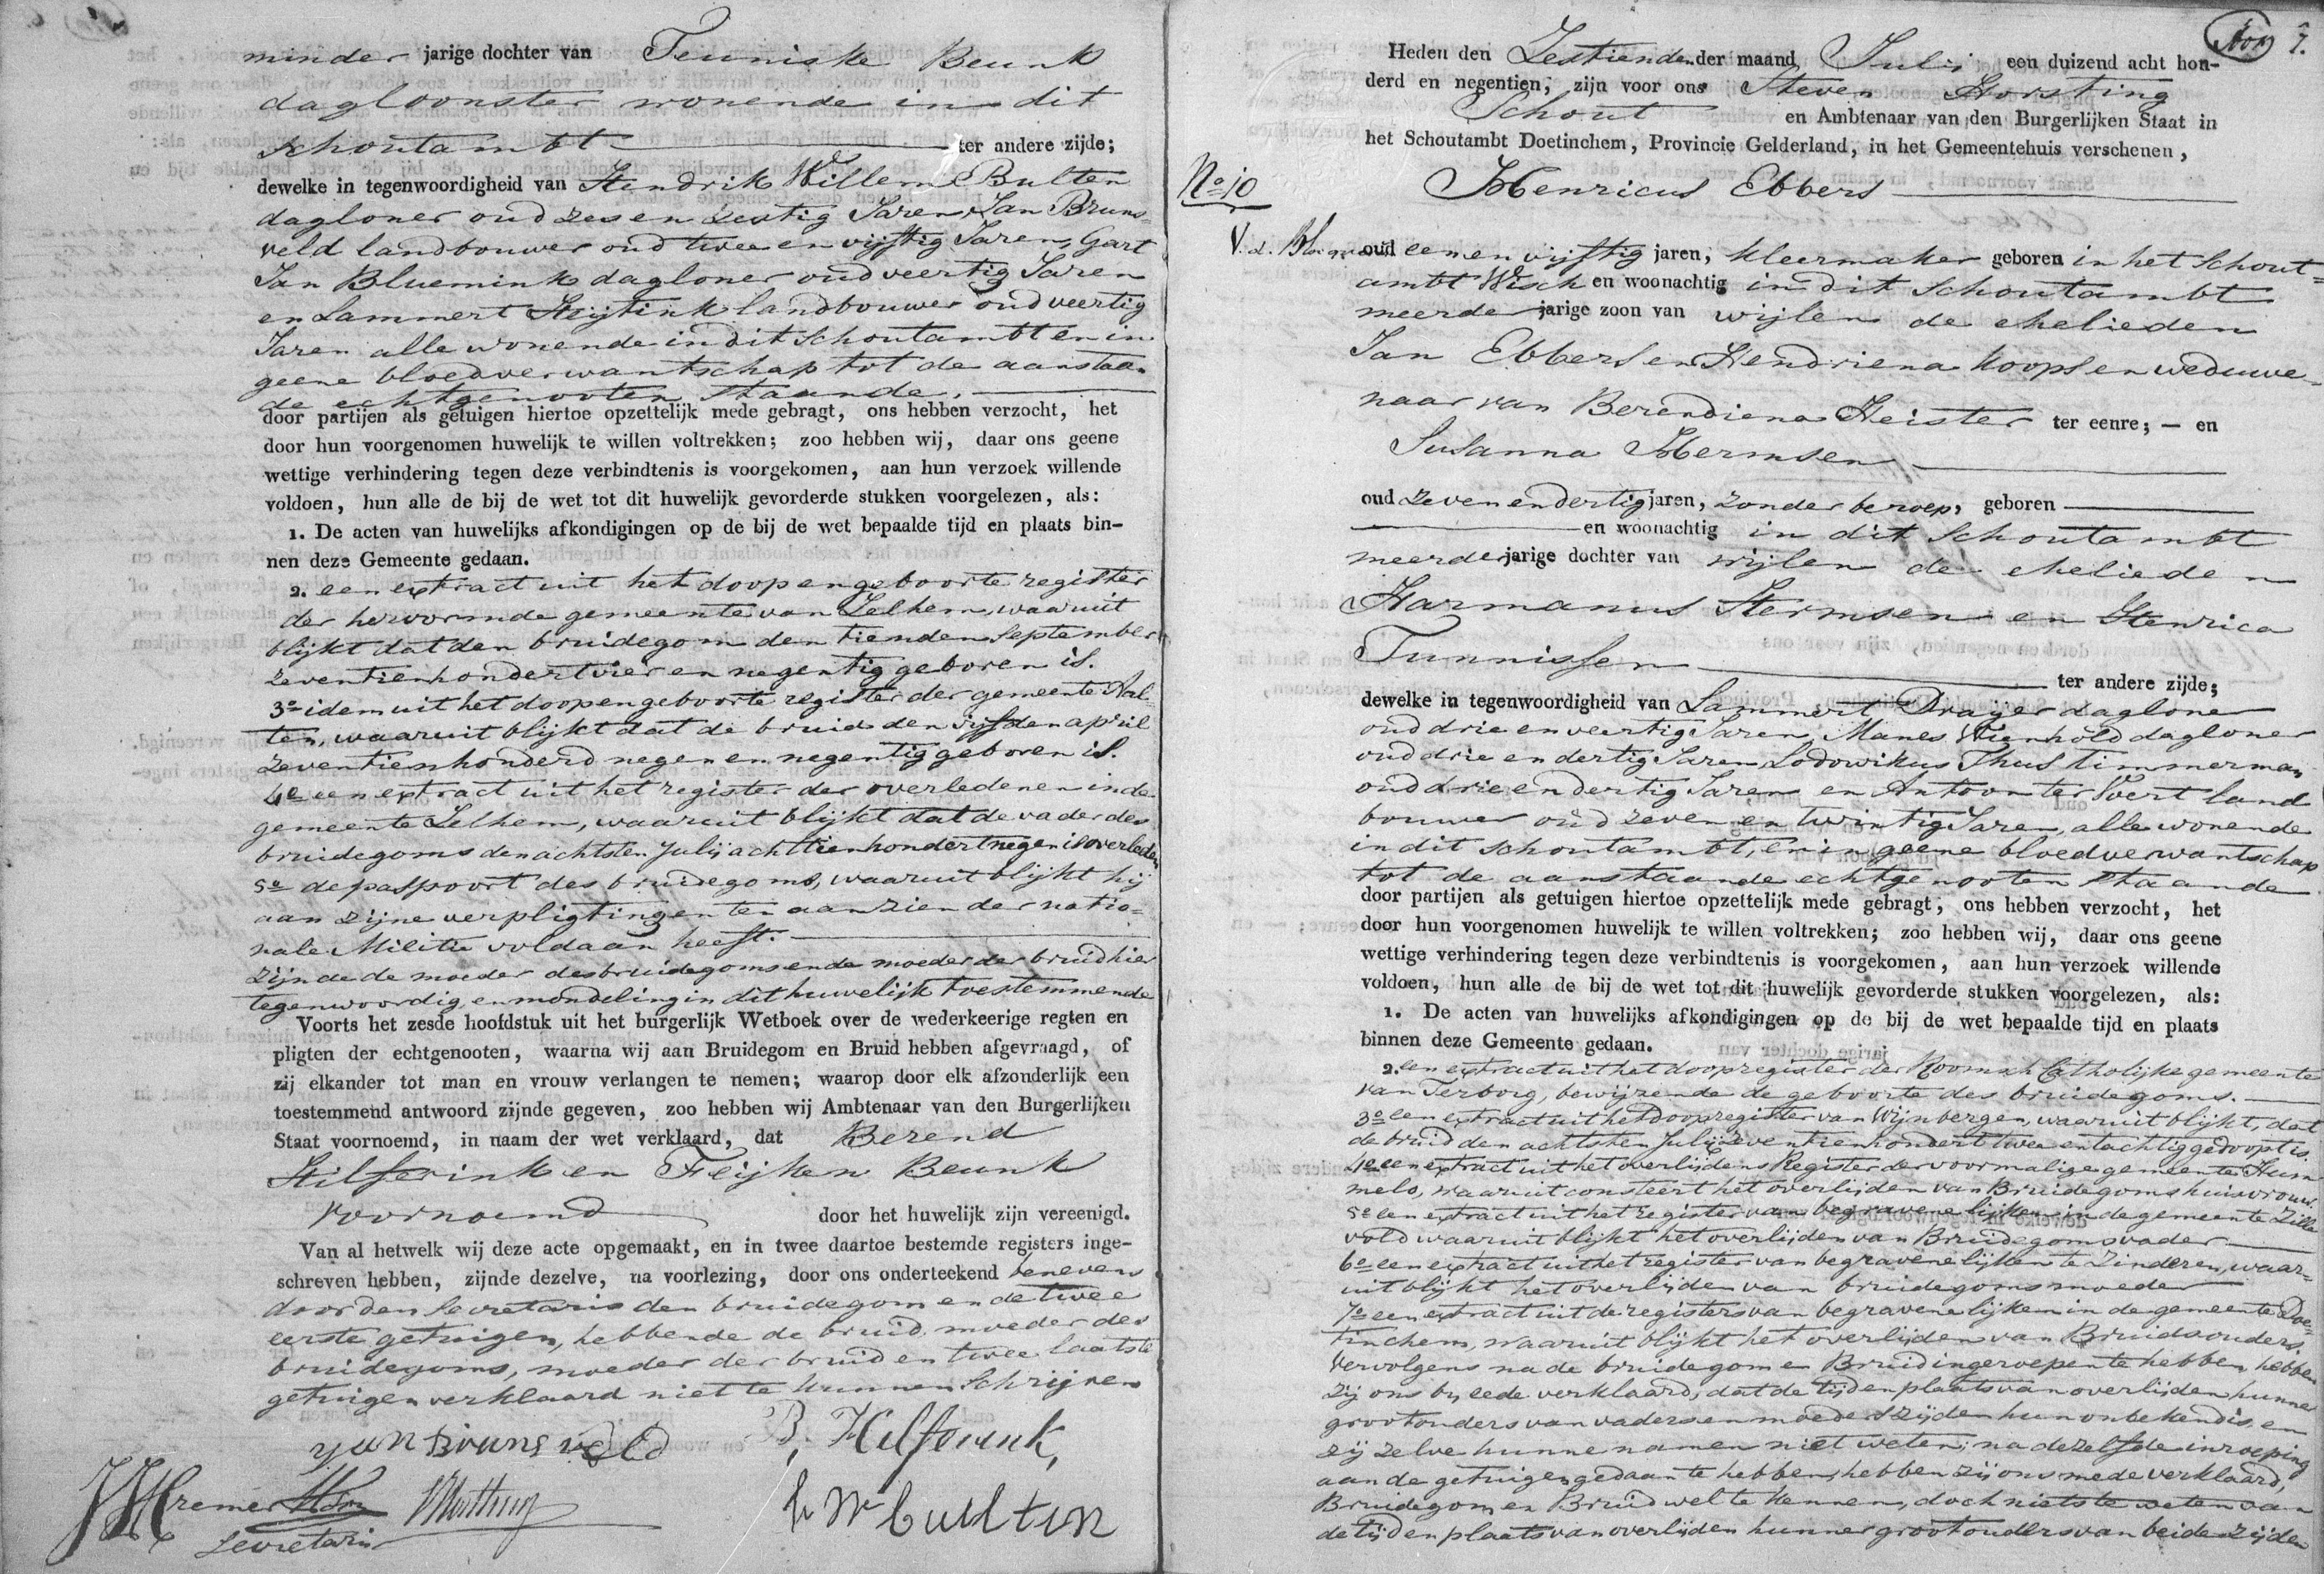 minder jarige dochter van Teuniske Beunk
dagloonster wonende in dit
schoutambt ter andere zijde;
dewelke in tegenwoordigheid van Hendrik Willem Bulten
dagloner oud zes en zestig Jaren, Jan Bruns=
veld landbouwer oud twee en vijftig Jaren, Gart
Jan Bluemink dagloner oud veertig Jaren
en Lammert Heijtink landbouwer oud veertig
Jaren alle wonende in dit schoutambt en in
geene bloedverwantschap tot de aanstaan
de echtgenooten staande.
door partijen als getuigen hiertoe opzettelijk mede gebragt, ons hebben verzocht, het
door hun voorgenomen huwelijk te willen voltrekken; zoo hebben wij, daar ons geene
wettige verhindering tegen deze verbindtenis is voorgekomen, aan hun verzoek willende
voldoen, hun alle de bij de wet tot dit huwelijk gevorderde stukken voorgelezen, als:
1. De acten van huwelijks afkondigingen op de bij de wet bepaalde tijd en plaats bin-
nen deze Gemeente gedaan.
2. een extract uit het doop en geboorte register
der hervormde gemeente van Zelhem, waaruit
blijkt dat den bruidegom den tienden September
zeventienhondert vier en negentig geboren is.
3e idem uit het doop en geboorte register der gemeente Aal=
ten, waaruit blijkt dat de bruid den vijfden april
zeventienhonderd negen en negentig geboren is.
4e een extract uit het register der overledenen in de
gemeente Zelhem, waaruit blijkt dat de vader des
bruidegoms den achtsten Julij achttienhondert negen is overleden
5e de paspoort des bruidegoms, waaruit blijkt hij
aan zijne verpligtingen ten aanzien der natio=
nale Militie voldaan heeft.
Zijnde de moeder des bruidegoms en de moeder der bruid hier
tegenwoordig, en mondeling in dit huwelijk toestemmende
Voorts het zesde hoofdstuk uit het burgerlijk Wetboek over de wederkeerige regten en
pligten der echtgenooten, waarna wij aan Bruidegom en Bruid hebben afgevraagd, of
zij elkander tot man en vrouw verlangen te nemen; waarop door elk afzonderlijk een
toestemmend antwoord zijnde gegeven, zoo hebben wij Ambtenaar van den Burgerlijken
Staat voornoemd, in naam der wet verklaard, dat Berend
Hilferink en Teijken Beunk
voornoemd door het huwelijk zijn vereenigd.
Van al hetwelk wij deze acte opgemaakt, en in twee daartoe bestemde registers inge-
schreven hebben, zijnde dezelve, na voorlezing, door ons onderteekend benevens
door den Secretaris den bruidegom en de twee
eerste getuigen, hebbende de bruid, moeder des
bruidegoms, moeder der bruid en twee laatste
getuigen verklaard niet te kunnen schrijven
yan Brunsveld B, Hilferink,
Kremer h W bullten
Secretaris
7.
Heden den Zestiende der maand Julij een duizend acht hon-
derd en negentien, zijn voor ons Steven Horsting
Schout en Ambtenaar van den Burgerlijken Staat in
het Schoutambt Doetinchem, Provincie Gelderland, in het Gemeentehuis verschenen,
No 10
Henricus Ebbers
oud een en vijftig jaren, kleermaker geboren in het Schout=
ambt Wisch en woonachtig in dit schoutambt
meerder jarige zoon van wijlen de ehelieden
Jan Ebbers en Hendriena Koops en weduwe=
naar van Berendiena Heister ter eenre; — en
Susanna Hermsen
oud zeven en dertig jaren, zonder beroep, geboren
en woonachtig in dit schoutambt
meerder jarige dochter van wijlen de ehelieden
Harmanus Hermsen en Henrica
Tunnissen
ter andere zijde;
dewelke in tegenwoordigheid van Lammert Drayer dagloner
oud drie en veertig Jaren, Manes Wienhold dagloner
oud drie en dertig Jaren Lodowikus Thus timmerman
oud drie en dertig Jaren en Antoon ter Voert land
bouwer oud zeven en twintig Jaren, alle wonende
in dit schoutambt, en in geene bloedverwantschap
tot de aanstaande echtgenooten staande
door partijen als getuigen hiertoe opzettelijk mede gebragt, ons hebben verzocht, het
door hun voorgenomen huwelijk te willen voltrekken; zoo hebben wij, daar ons geene
wettige verhindering tegen deze verbindtenis is voorgekomen, aan hun verzoek willende
voldoen, hun alle de bij de wet tot dit huwelijk gevorderde stukken voorgelezen, als:
1. De acten van huwelijks afkondigingen op de bij de wet bepaalde tijd en plaats
binnen deze Gemeente gedaan.
2. een extract uit het doopregister der Roomsch Catholijke gemeente
van Terborg, bewijzende de geboorte des bruidegoms.
3e een extract uit het doopregister van Wijnbergen, waaruit blijkt, dat
de bruid den achtsten Julij zeventienhondert twee en tachtig gedoopt is.
4e een extract uit het overlijdens Register der voormalige gemeente Hum
melo, waaruit consteert het overlijden van Bruidegoms huisvrouw
5e een extract uit het register van begravene lijken in de gemeente Zille
vold waaruit blijkt het overlijden van Bruidegoms vader
6e een extract uit het register van begravene lijken te Zinderen, waar=
uit blijkt het overlijden van bruidegoms moeder
7e een extract uit de registers van begravene lijken in de gemeente Doe=
tinchem, waaruit blijkt het overlijden van Bruids ouders.
Vervolgens na de bruidegom en Bruid ingeroepen te hebben, hebben
zij ons bij eede verklaard, dat de tijd en plaats van overlijden hunner
grootouders van vaders en moeders zijden hun onbekend is, en
zij zelve hunne namen niet weten; na dezelfde inroeping
aan de getuigen gedaan te hebben, hebben zij ons mede verklaard,
Bruidegom en Bruid wel te kennen, doch niets te weten van
de tijd en plaats van overlijden hunner grootouders van beide zijden